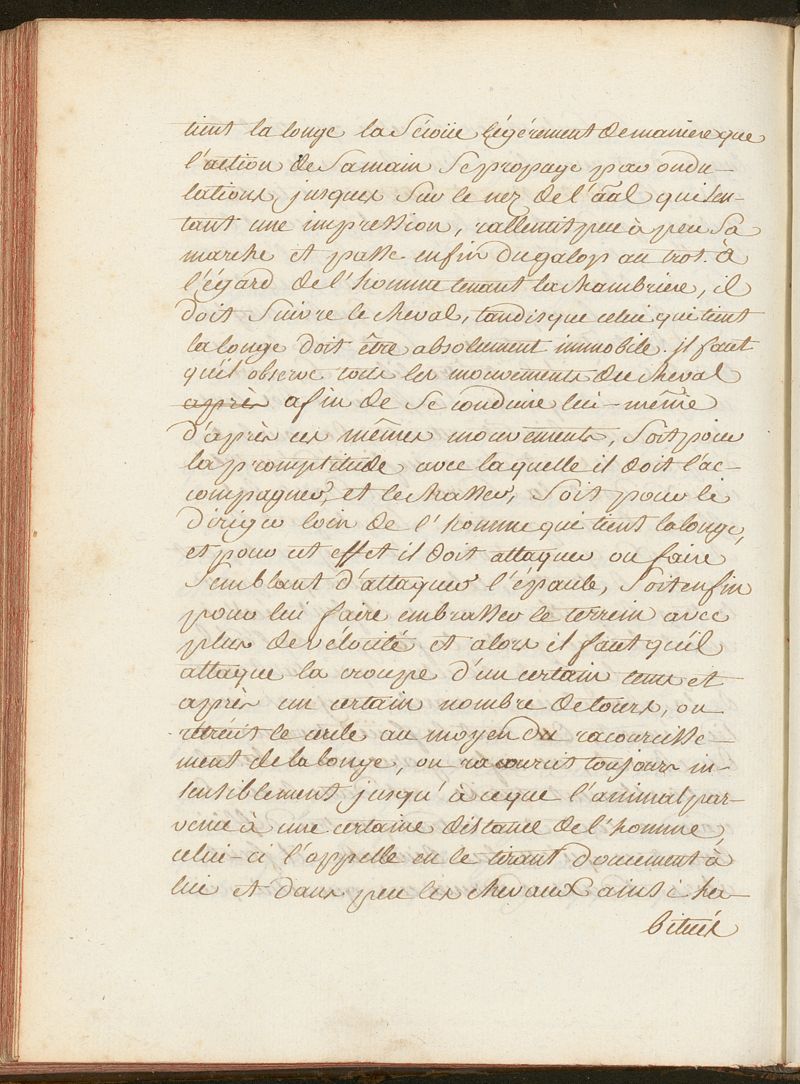 tient la longe la sécoüe légérement de maniere que
l'action de sa main se propage par ondu-
lations jusques sur le nez de l'āal qui sen-
tant une impression, rallentit peu à peu sa
marche et passe enfin du galop au trot. à
l'égard de l'homme tenant la chambriere, il
doit suivre le cheval, tandis que celui qui tient
la longe doit être absolument immobile. il faut
qu'il observe tous les mouvements du cheval
après afin de se conduire lui-même
d'après ces mêmes mouvements, soit pour
la promptitude avec laquelle il doit l'ac-
compagner, et le chasser, soit pour le
diriger loin de l'homme qui tient la longe,
et pour cet effet il doit attaquer ou faire
semblant d'attaquer l'épaule, soit enfin
pour lui faire embrasser le terrein avec
plus de vélocité et alors il faut qu'il
attaque la croupe d'un certain tems et
après un certain nombre de tours, on
rétrécit le cercle au moyen du racourcisse-
ment de la longe, on racourcit toujours in-
sensiblement jusqu'à ce que l'animal par-
venu à une certaine distance de l'homme,
celui-ci l'appelle en le tirant doucement à
lui et dans peu les chevaux ainsi ha-
bitués